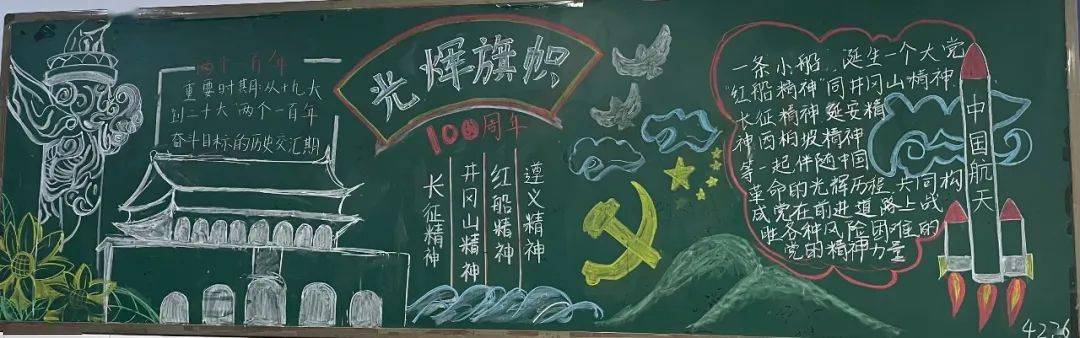 两个一百年
重要时期:从十九大
到二十大"两个一百年
奋斗目标的历史交汇期
光辉旗帜
100周年
长征精神
井冈山精神
红船精神
遵义精神
一条小船,诞生一个大党
"红船精神"同井冈山精神
长征精神 延安精
神西柏坡精神
等一起伴随中国
革命的光辉历程,共同构
成党在前进道路上战
胜各种风险困难的
党的精神力量
中国航天